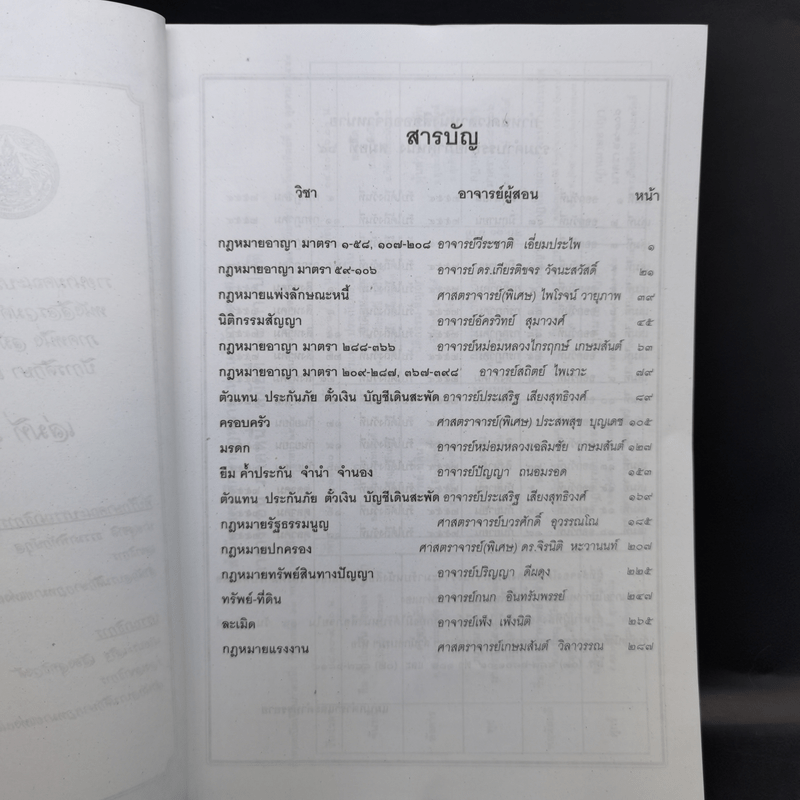 สารบัญ
วิชา อาจารย์ผู้สอน หน้า
กฎหมายอาญา มาตรา ๑-๕๘, ๑๐๗-๒๐๘ อาจารย์วีระชาติ เอี่ยมประไพ ๑
กฎหมายอาญา มาตรา ๕๙-๑๐๖ อาจารย์ ดร.เกียรติขจร วัจนะสวัสดิ์ ๒๑
กฎหมายแพ่งลักษณะหนี้ ศาสตราจารย์(พิเศษ) ไพโรจน์ วายุภาพ ๓๙
นิติกรรมสัญญา อาจารย์อัครวิทย์ สุมาวงศ์ ๔๕
กฎหมายอาญา มาตรา ๒๘๘-๓๖๖ อาจารย์หม่อมหลวงไกรฤกษ์ เกษมสันต์ ๖๓
กฎหมายอาญา มาตรา ๒๐๙-๒๘๗, ๓๖๗-๓๙๘ อาจารย์สถิตย์ ไพเราะ ๗๙
ตัวแทน ประกันภัย ตั๋วเงิน บัญชีเดินสะพัด อาจารย์ประเสริฐ เสียงสุทธิวงศ์ ๘๙
ครอบครัว ศาสตราจารย์(พิเศษ) ประสพสุข บุญเดช ๑๐๕
มรดก อาจารย์หม่อมหลวงเฉลิมชัย เกษมสันต์ ๑๒๗
ยืม ค้ำประกัน จำนำ จำนอง อาจารย์ปัญญา ถนอมรอด ๑๕๓
ตัวแทน ประกันภัย ตั๋วเงิน บัญชีเดินสะพัด อาจารย์ประเสริฐ เสียงสุทธิวงศ์ ๑๖๙
กฎหมายรัฐธรรมนูญ ศาสตราจารย์บวรศักดิ์ อุวรรณโณ ๑๘๕
กฎหมายปกครอง ศาสตราจารย์(พิเศษ) ดร.จิรนิติ หะวานนท์ ๒๐๗
กฎหมายทรัพย์สินทางปัญญา อาจารย์ปริญญา ดีผดุง ๒๒๕
ทรัพย์-ที่ดิน อาจารย์กนก อินทรัมพรรย์ ๒๔๗
ละเมิด อาจารย์เพ็ง เพ็งนิติ ๒๖๕
กฎหมายแรงงาน ศาสตราจารย์เกษมสันต์ วิลาวรรณ ๒๘๗